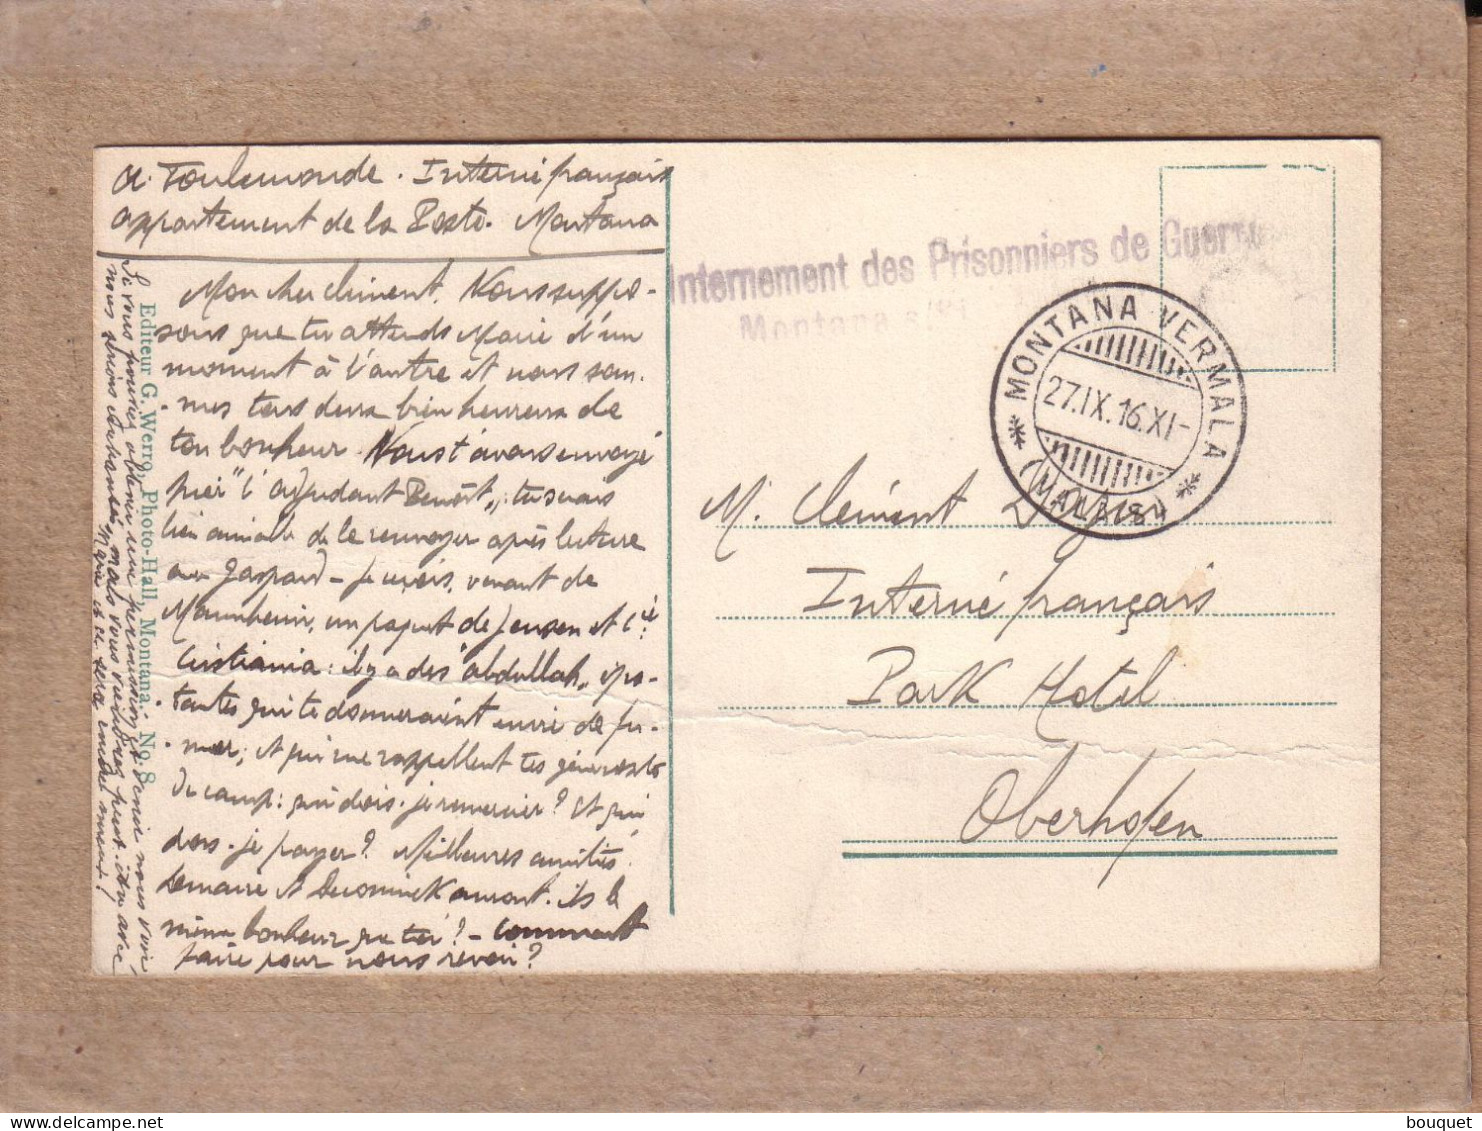 A. Toulemonde. Interné français
appartement de la Poste. Montana
Mon cher Clément, Nous suppo-
sons que tu attends Marie d'un
moment à l'autre et nous som-
mes tous deux bien heureux de
ton bonheur. Nous t'avons envoyé
hier "l'adjudant Benoît"; tu serais
bien aimable de le renvoyer après lecture
au Gaspard - Je reçois, venant de
Mannheim, un paquet de Jensen et Cie
Cristiania : il y a des "abdullah" épa-
tantes qui te donneraient envie de fu-
mer; et qui me rappellent tes générosités
du camp : qui dois-je remercier? Et qui
dois-je payer? Meilleures amitiés.
Lemaire et Decominck auront-ils le
même bonheur que toi? - Comment
faire pour nous revoir?
Si vous pouviez obtenir une permission et venir nous voir,
nous serions enchantés, mais vous viendrez peut-être avec
Marie et ce sera encore mieux!
Editeur G. Werro, Photo-Hall, Montana. No. 8
Internement des Prisonniers de Guerre
Montana s/
MONTANA VERMALA
27.IX.16.XI-
(VALAIS)
M. Clément
Interné français
Park Hotel
Oberhofen
bouquet